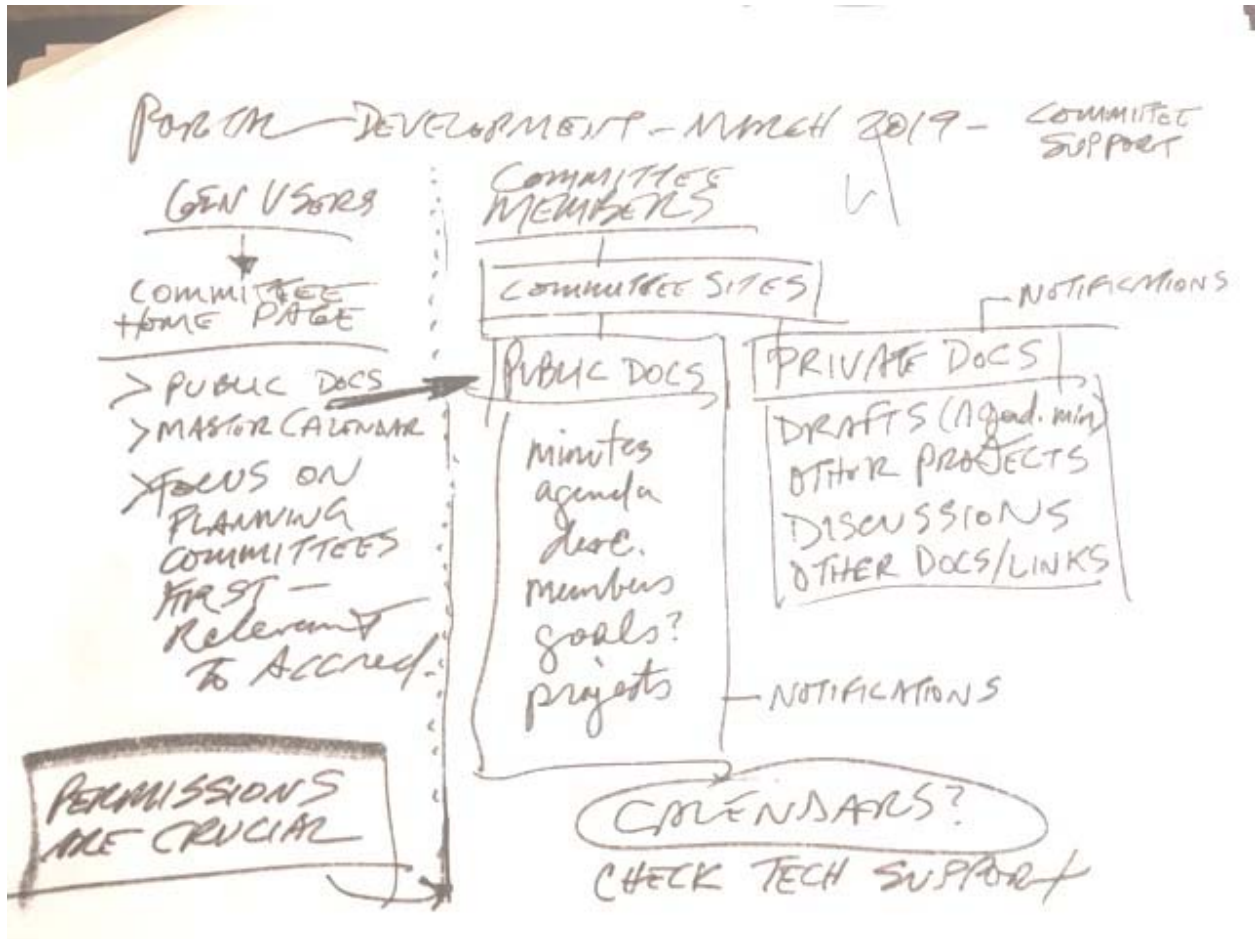 PORTAL DEVELOPMENT - MARCH 2019 - COMMITTEE
SUPPORT
GEN USERS
COMMITTEE
HOME PAGE
> PUBLIC DOCS
> MASTER CALENDAR
> FOCUS ON
PLANNING
COMMITTEES
FIRST -
Relevant
To Accred.
PERMISSIONS
ARE CRUCIAL
COMMITTEE
MEMBERS
COMMITTEE SITES
PUBLIC DOCS
minutes
agenda
members
goals?
projects
NOTIFICATIONS
NOTIFICATIONS
PRIVATE DOCS
DRAFTS (Agend. min)
OTHER PROJECTS
DISCUSSIONS
OTHER DOCS/LINKS
CALENDARS?
CHECK TECH SUPPORT